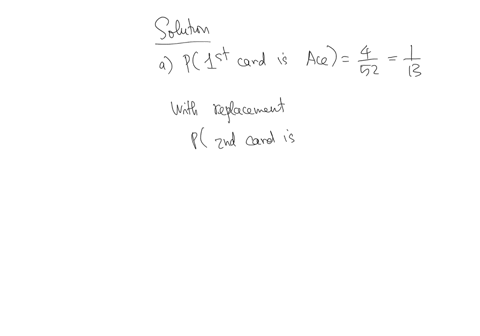 Solution
a) P(1st card is Ace) = 4/52 = 1/13
With replacement
P( 2nd card is